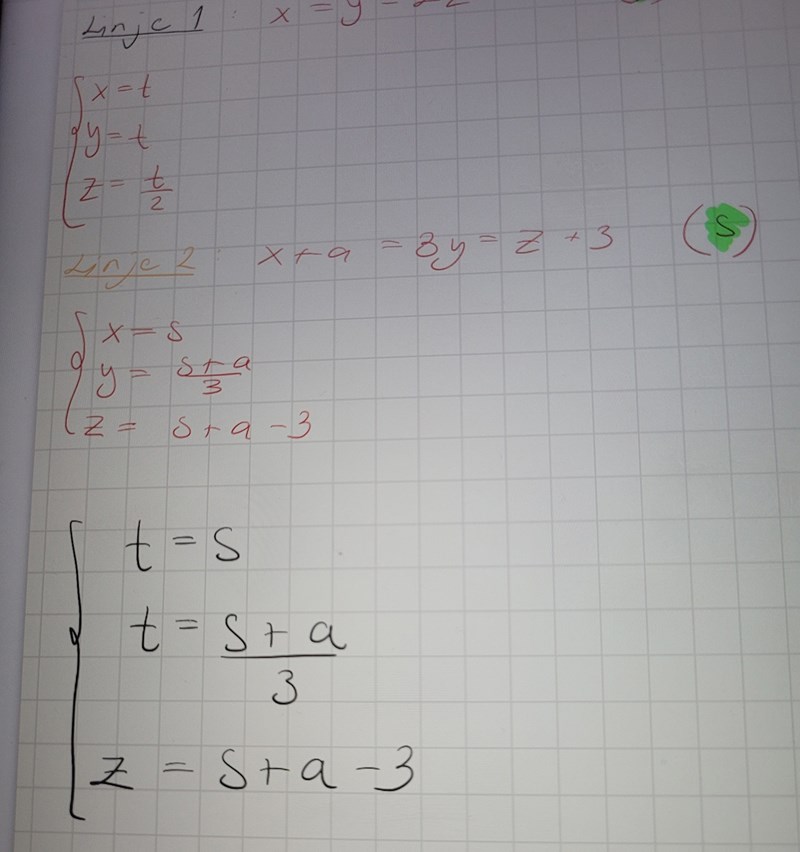 Linje 1 : x = y = 2z
x = t
y = t
z = t/2
Linje 2 : x + a = 3y = z + 3 (s)
x = s
y = (s + a)/3
z = s + a - 3
t = s
t = (s + a)/3
z = s + a - 3